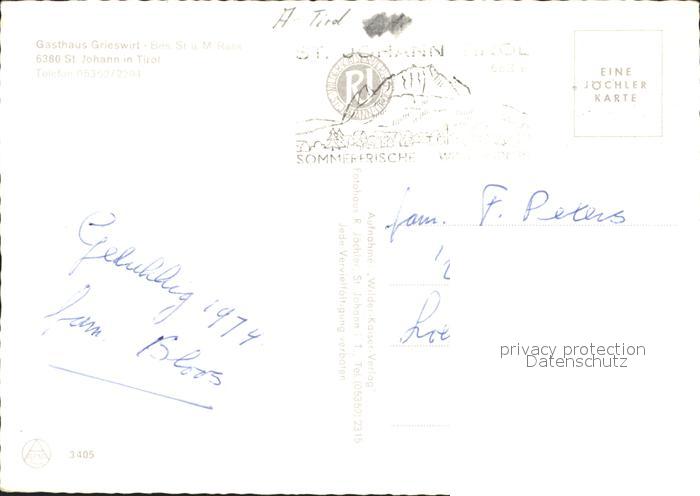 A - Tirol
Gasthaus Grieswirt · Bes. St. u. M. Rass
6380 St. Johann in Tirol
Telefon 05352/2294
ST. JOHANN TIROL
RJ
SOMMERFRISCHE
EINE
JÖCHLER
KARTE
Aufnahme „Wilder-Kaiser-Verlag"
Fotohaus R. Jöchler, St. Johann i. T., Tel. (05352) 2315
Jede Vervielfältigung verboten
fam. F. Peters
Gelukkig 1974
fam. Bloos
privacy protection
Datenschutz
3405